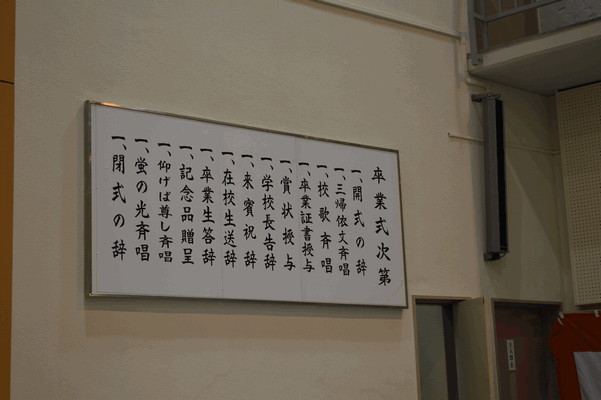 卒業式次第
一、開式の辞
一、三帰依文斉唱
一、校歌斉唱
一、卒業証書授与
一、賞状授与
一、学校長告辞
一、来賓祝辞
一、在校生送辞
一、卒業生答辞
一、記念品贈呈
一、仰げば尊し斉唱
一、蛍の光斉唱
一、閉式の辞